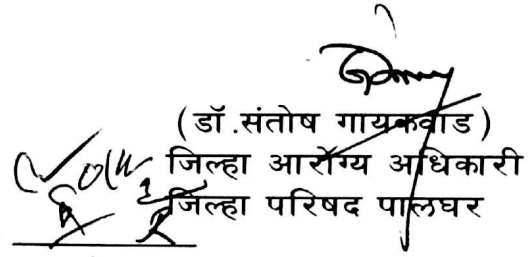 (डॉ.संतोष गायकवाड)
जिल्हा आरोग्य अधिकारी
जिल्हा परिषद पालघर